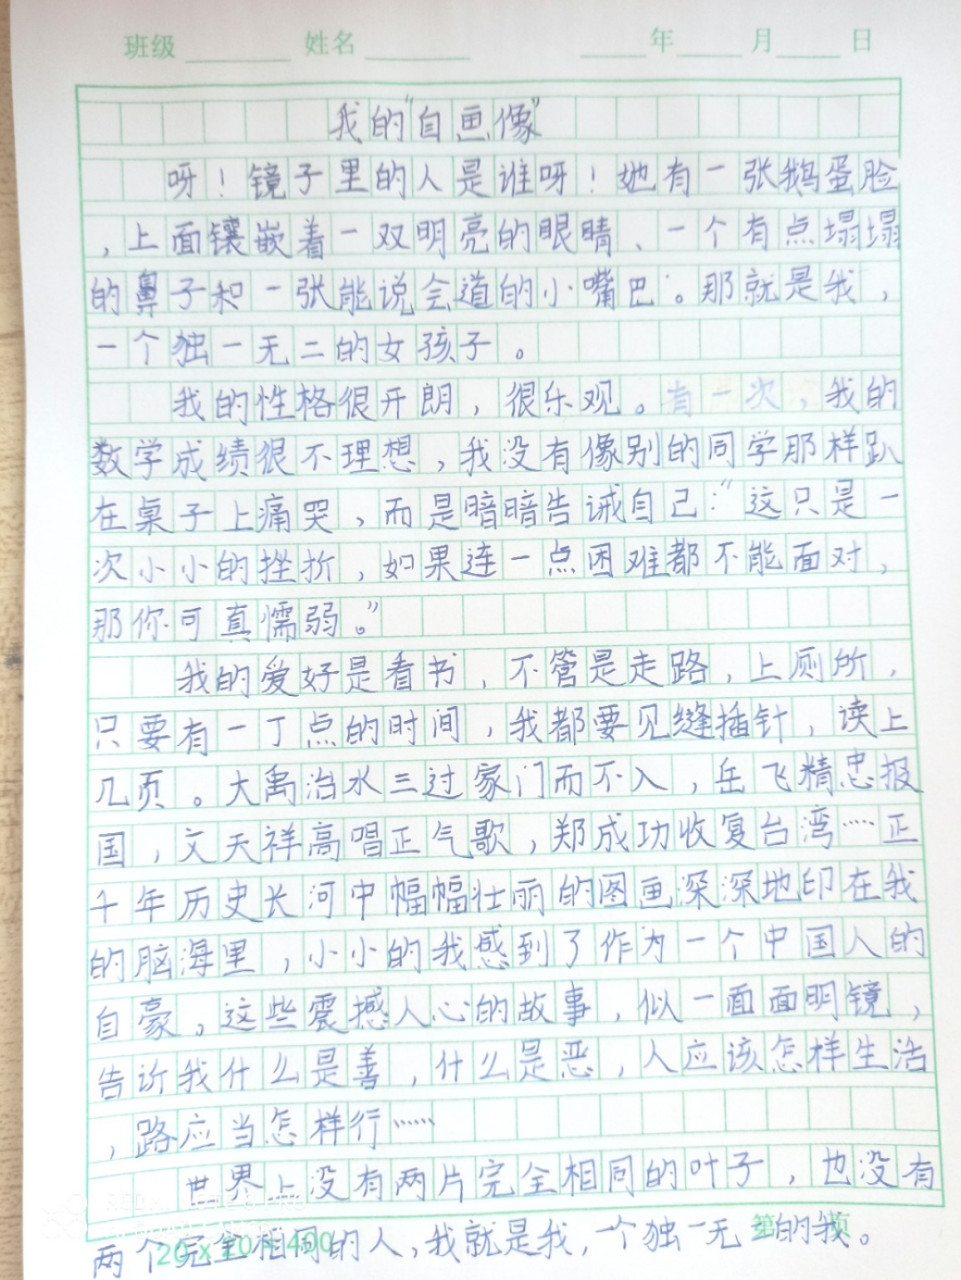 班级 姓名 年 月 日
我的"自画像"
呀！镜子里的人是谁呀！她有一张鹅蛋脸
，上面镶嵌着一双明亮的眼睛、一个有点塌塌
的鼻子和一张能说会道的小嘴巴。那就是我，
一个独一无二的女孩子。
我的性格很开朗，很乐观。有一次，我的
数学成绩很不理想，我没有像别的同学那样趴
在桌子上痛哭，而是暗暗告诫自己："这只是一
次小小的挫折，如果连一点困难都不能面对，
那你可真懦弱。"
我的爱好是看书，不管是走路，上厕所，
只要有一丁点的时间，我都要见缝插针，读上
几页。大禹治水三过家门而不入，岳飞精忠报
国，文天祥高唱正气歌，郑成功收复台湾……正
千年历史长河中幅幅壮丽的图画深深地印在我
的脑海里，小小的我感到了作为一个中国人的
自豪。这些震撼人心的故事，似一面面明镜，
告诉我什么是善，什么是恶，人应该怎样生活
，路应当怎样行……
世界上没有两片完全相同的叶子，也没有
两个完全相同的人，我就是我，一个独一无二的我。